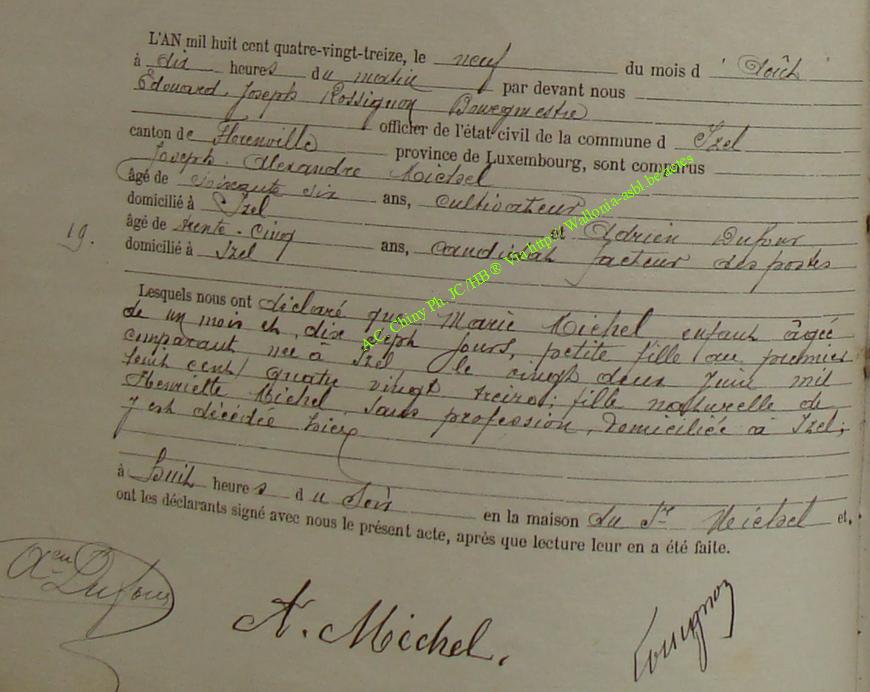 L'AN mil huit cent quatre-vingt-treize, le neuf du mois d'Août
à dix heures du matin par devant nous
Edouard, Joseph Rossignon Bourgmestre
officier de l'état civil de la commune d Izel
canton de Florenville province de Luxembourg, sont comparus
Joseph-Alexandre Michel
âgé de soixante six ans, cultivateur
domicilié à Izel et Adrien Dufour
19.
âgé de trente-cinq ans, candidat facteur des postes
domicilié à Izel
Lesquels nous ont déclaré que Marie Michel enfant âgée
de un mois et dix sept jours, petite fille au premier
comparant née à Izel, le vingt deux Juin mil
huit cent quatre vingt treize; fille naturelle de
Henriette Michel, sans profession, domiciliée à Izel;
y est décédée hier
à huit heures du soir en la maison du Sr Michel et,
ont les déclarants signé avec nous le présent acte, après que lecture leur en a été faite.
Dufour
A. Michel.
Rossignon
A.C. Chiny Ph. JC/HB® Via http://Wallonia-asbl.be/actes